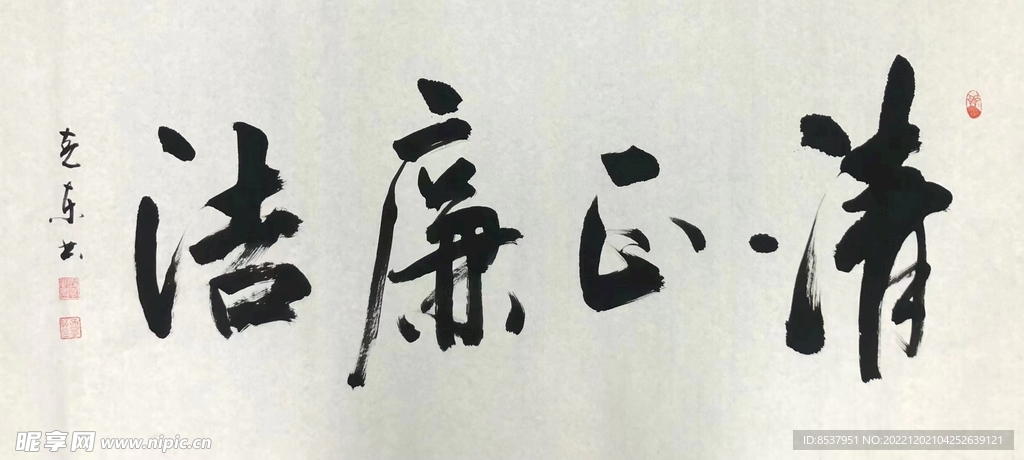 清正廉洁
尧东书
昵享网 www.nipic.cn
ID:8537951 NO:20221202104252639121